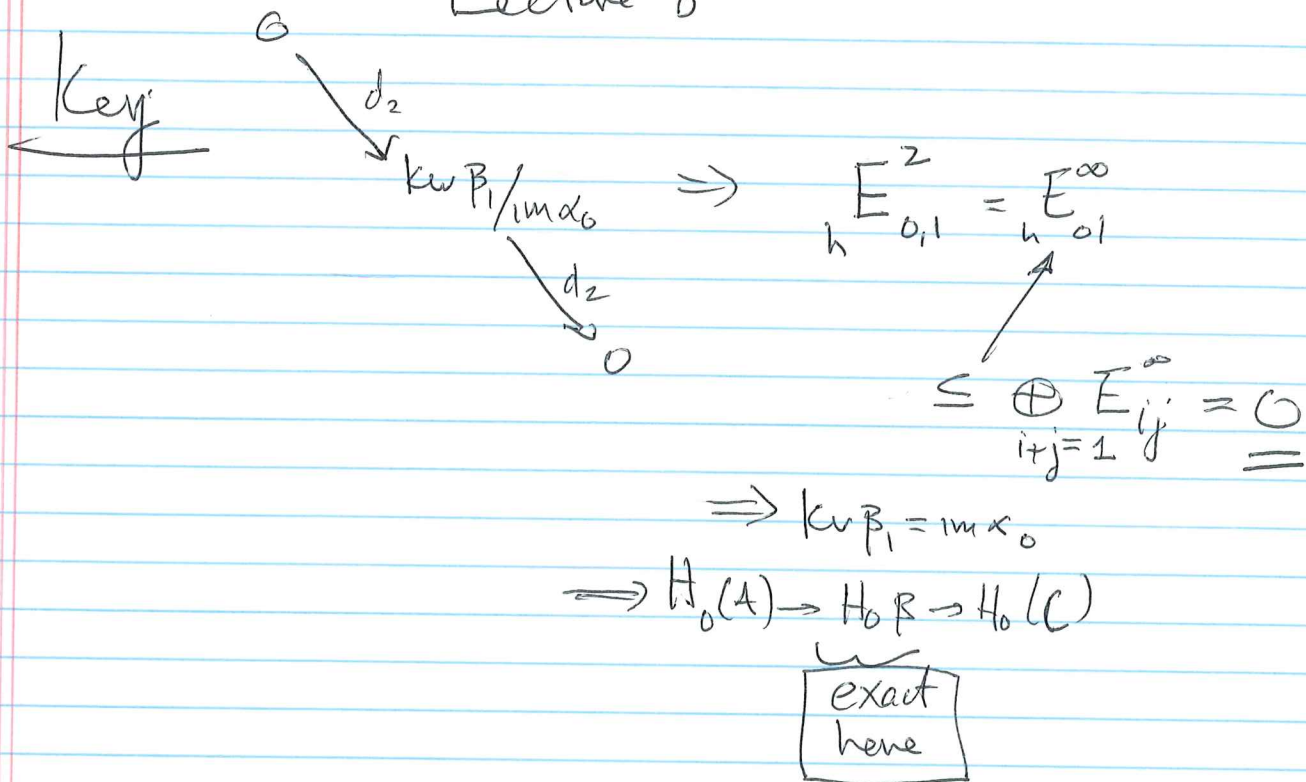 Lecture 8
0
Key
d₂
ker β₁/im α₀ ⇒ ₕE²₀,₁ = ₕE^∞₀₁
d₂
0
≤ ⊕_{i+j=1} E^∞_{ij} = 0
⇒ ker β₁ = im α₀
⇒ H₀(A) → H₀β → H₀(C)
exact
here